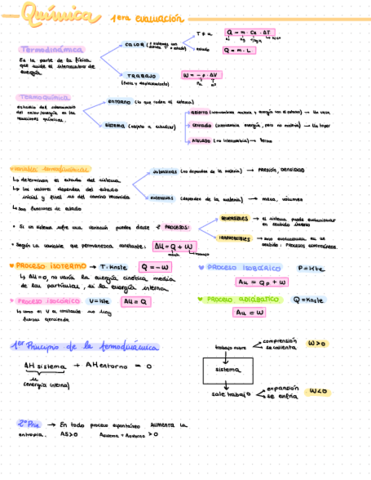 Química 1era evaluación
Termodinámica
Es la parte de la física
que mide el intercambio de
energía.
CALOR
T ≠ k
Q = m · Ce · ΔT
estado
Q = m · L
TRABAJO
W = -P · ΔV
Termoquímica
estudia el intercambio
del calor/energía en las
reacciones químicas.
ENTORNO (lo que rodea el sistema)
SISTEMA (región a estudiar)
ABIERTO (intercambia materia y energía con el exterior) → Un vaso
CERRADO (intercambia energía, pero no materia)
AISLADO (no intercambia) → termo
Variables termodinámicas
↳ determinan el estado del sistema
↳ los valores dependen del estado
inicial y final no del camino recorrido
↳ son funciones de estado
INTENSIVAS (no dependen de la materia) → PRESIÓN, DENSIDAD
EXTENSIVAS (dependen de la materia) → masa, volumen
• Si un sistema sufre una variación puedes darse ≠ PROCESOS:
REVERSIBLES → el sistema puede evolucionar
en sentido inverso
IRREVERSIBLES →
• Según la variable que permanezca constante:
ΔU = Q + W
PROCESO ISOTERMO → T = Knste
Q = -W
↳ ΔU = 0, no varía la energía cinética media
de las partículas, ni la energía interna
PROCESO ISOBÁRICO P = Kte
ΔU = Qp + W
PROCESO ISOCÓRICO V = Kte
ΔU = Q
PROCESO ADIABÁTICO Q = Knste
ΔU = W
1er Principio de la termodinámica
ΔH sistema + ΔH entorno = 0
(energía interna)
trabajo
compresión
se calienta
W>0
sistema
sale trabajo
expansión
se enfría
W<0
→ En todo proceso espontáneo AUMENTA la
entropía. ΔS>0 ΔSsistema + ΔSentorno > 0